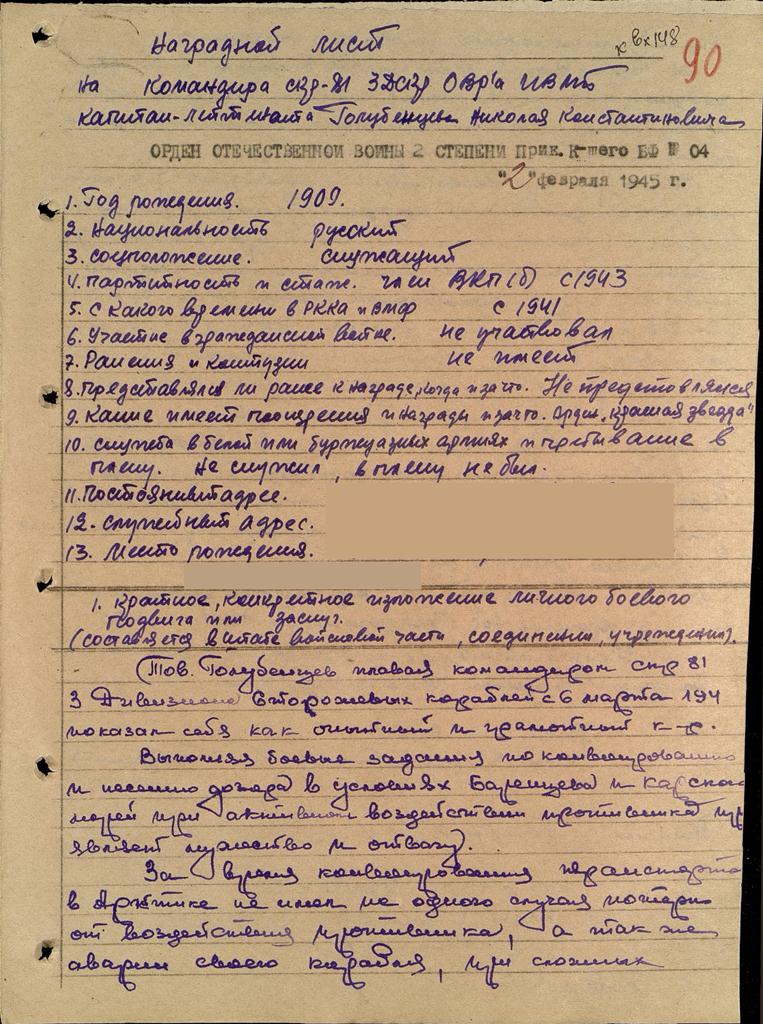 Наградной лист
к вх 148
90
на Командира скр-81 3ДСКР ОВР'а ИВМБ
капитан-лейтенанта Голубенцева Николая Константиновича
ОРДЕН ОТЕЧЕСТВЕННОЙ ВОИНЫ 2 СТЕПЕНИ Прик. К-щего БФ № 04
"2" февраля 1945 г.
1. Год рождения. 1909.
2. Национальность русский
3. соцположение. служащий
4. партийность и стаж. член ВКП(б) с 1943
5. С какого времени в РККА и ВМФ с 1941
6. Участие в гражданской войне. не участвовал
7. Ранения и контузии не имеет
8. Представлялся ли ранее к награде, когда и за что. Не представлялся
9. Какие имеет поощрения и награды и за что. Орден „Красная звезда"
10. служба в белой или буржуазных армиях и пребывание в
плену. не служил, в плену не был.
11. Постоянный адрес.
12. служебный адрес.
13. Место рождения.
1. Краткое, конкретное изложение личного боевого
подвига или заслуг.
(составляется в штабе войсковой части, соединении, учреждении).
Тов. Голубенцев плавая командиром скр 81
3 Дивизиона Сторожевых кораблей с 6 марта 194
показал себя как опытный и грамотный к-р.
Выполняя боевые задания по конвоированию
и несению дозора в условиях Баренцева и Карского
морей при активном воздействии противника пр
являет мужество и отвагу.
За время конвоирования транспорто
в Арктике не имел не одного случая потери
от воздействия противника, а так же
аварии своего корабля, при сложных